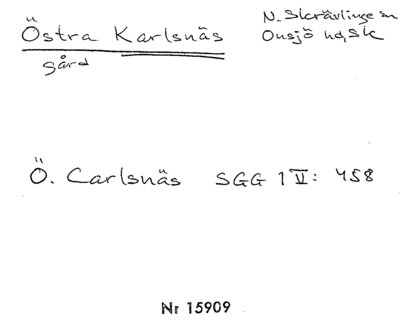 Östra Karlsnäs
gård
N. Skrävlinge sn
Onsjö hd, Sk
Ö. Carlsnäs SGG 1 V: 458
Nr 15909